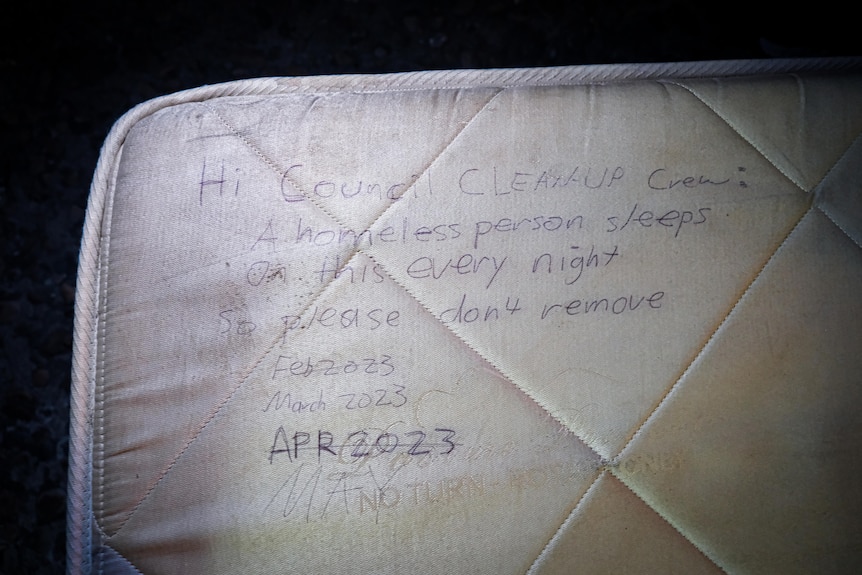 Hi Council CLEAN-UP Crew:
A homeless person sleeps
On this every night
so please don't remove
Feb 2023
March 2023
APR 2023
MAY
NO TURN -